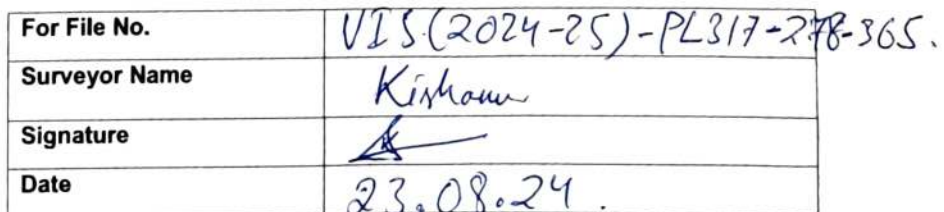 For File No. VIS(2024-25)-PL317-278-365.
Surveyor Name
Signature
Date 23.08.24.